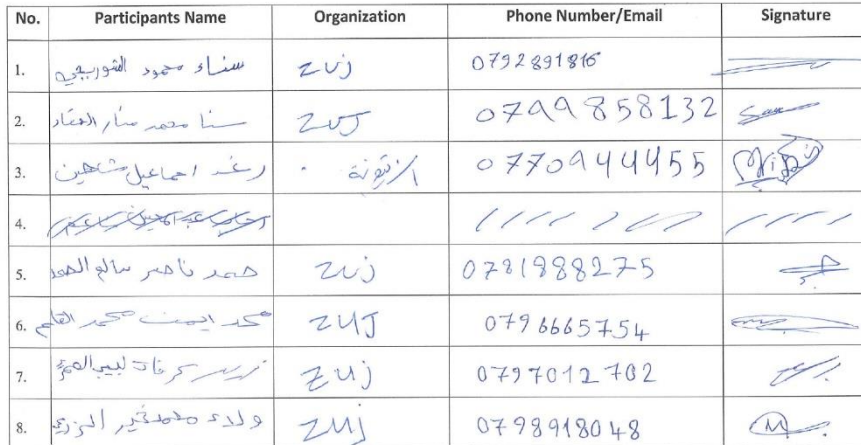 No. Participants Name Organization Phone Number/Email Signature
1. سناء محمود الشوربجي ZUJ 0792891816
2. سنا محمد منار العقاد ZUJ 0799858132
3. رغد اسماعيل شاهين الزيتونة 0770944455
4.
5. حمد ناصر سالم ZUJ 0781988275
6. محمد ايمن محمد ZUJ 0796665754
7. ZUJ 0797012702
8. ولاء محمد خير ZUJ 0798918048